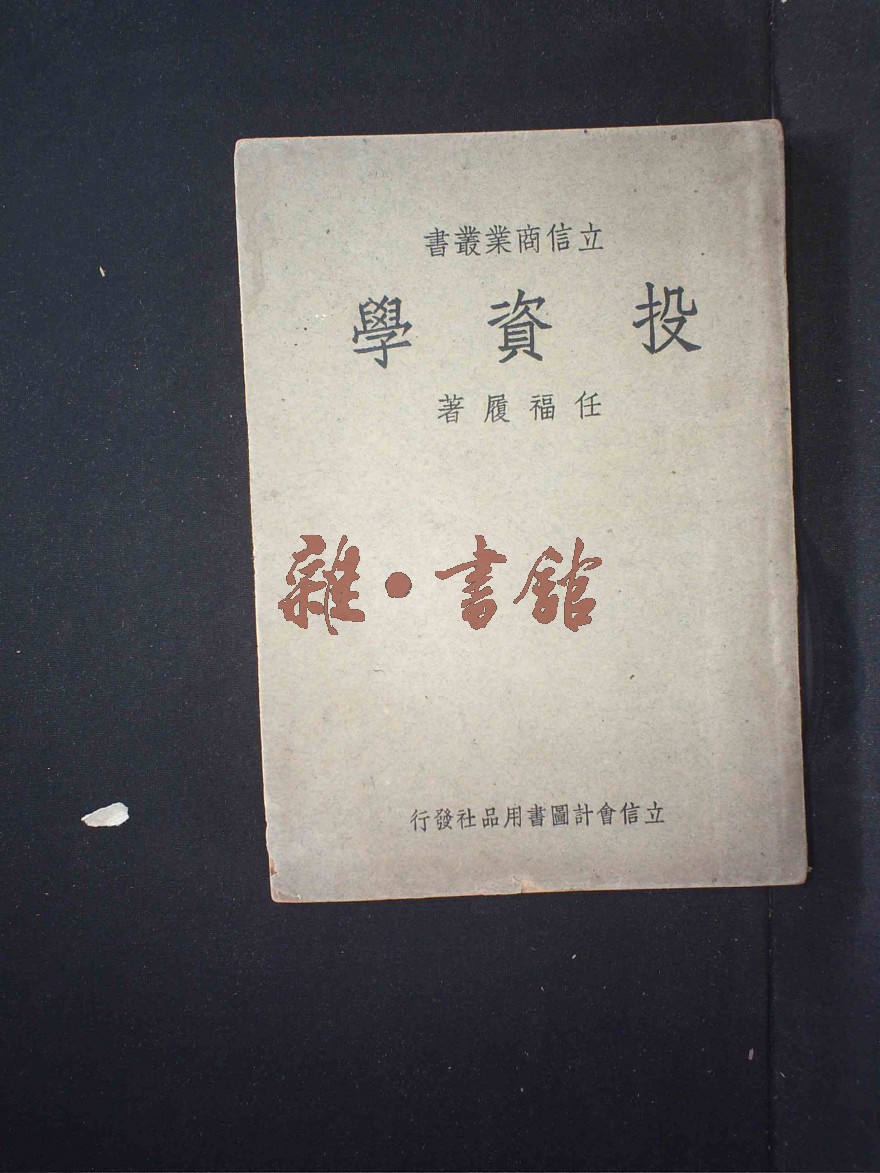 立信商業叢書
投資學
任福履著
雜·書館
立信會計圖書用品社發行